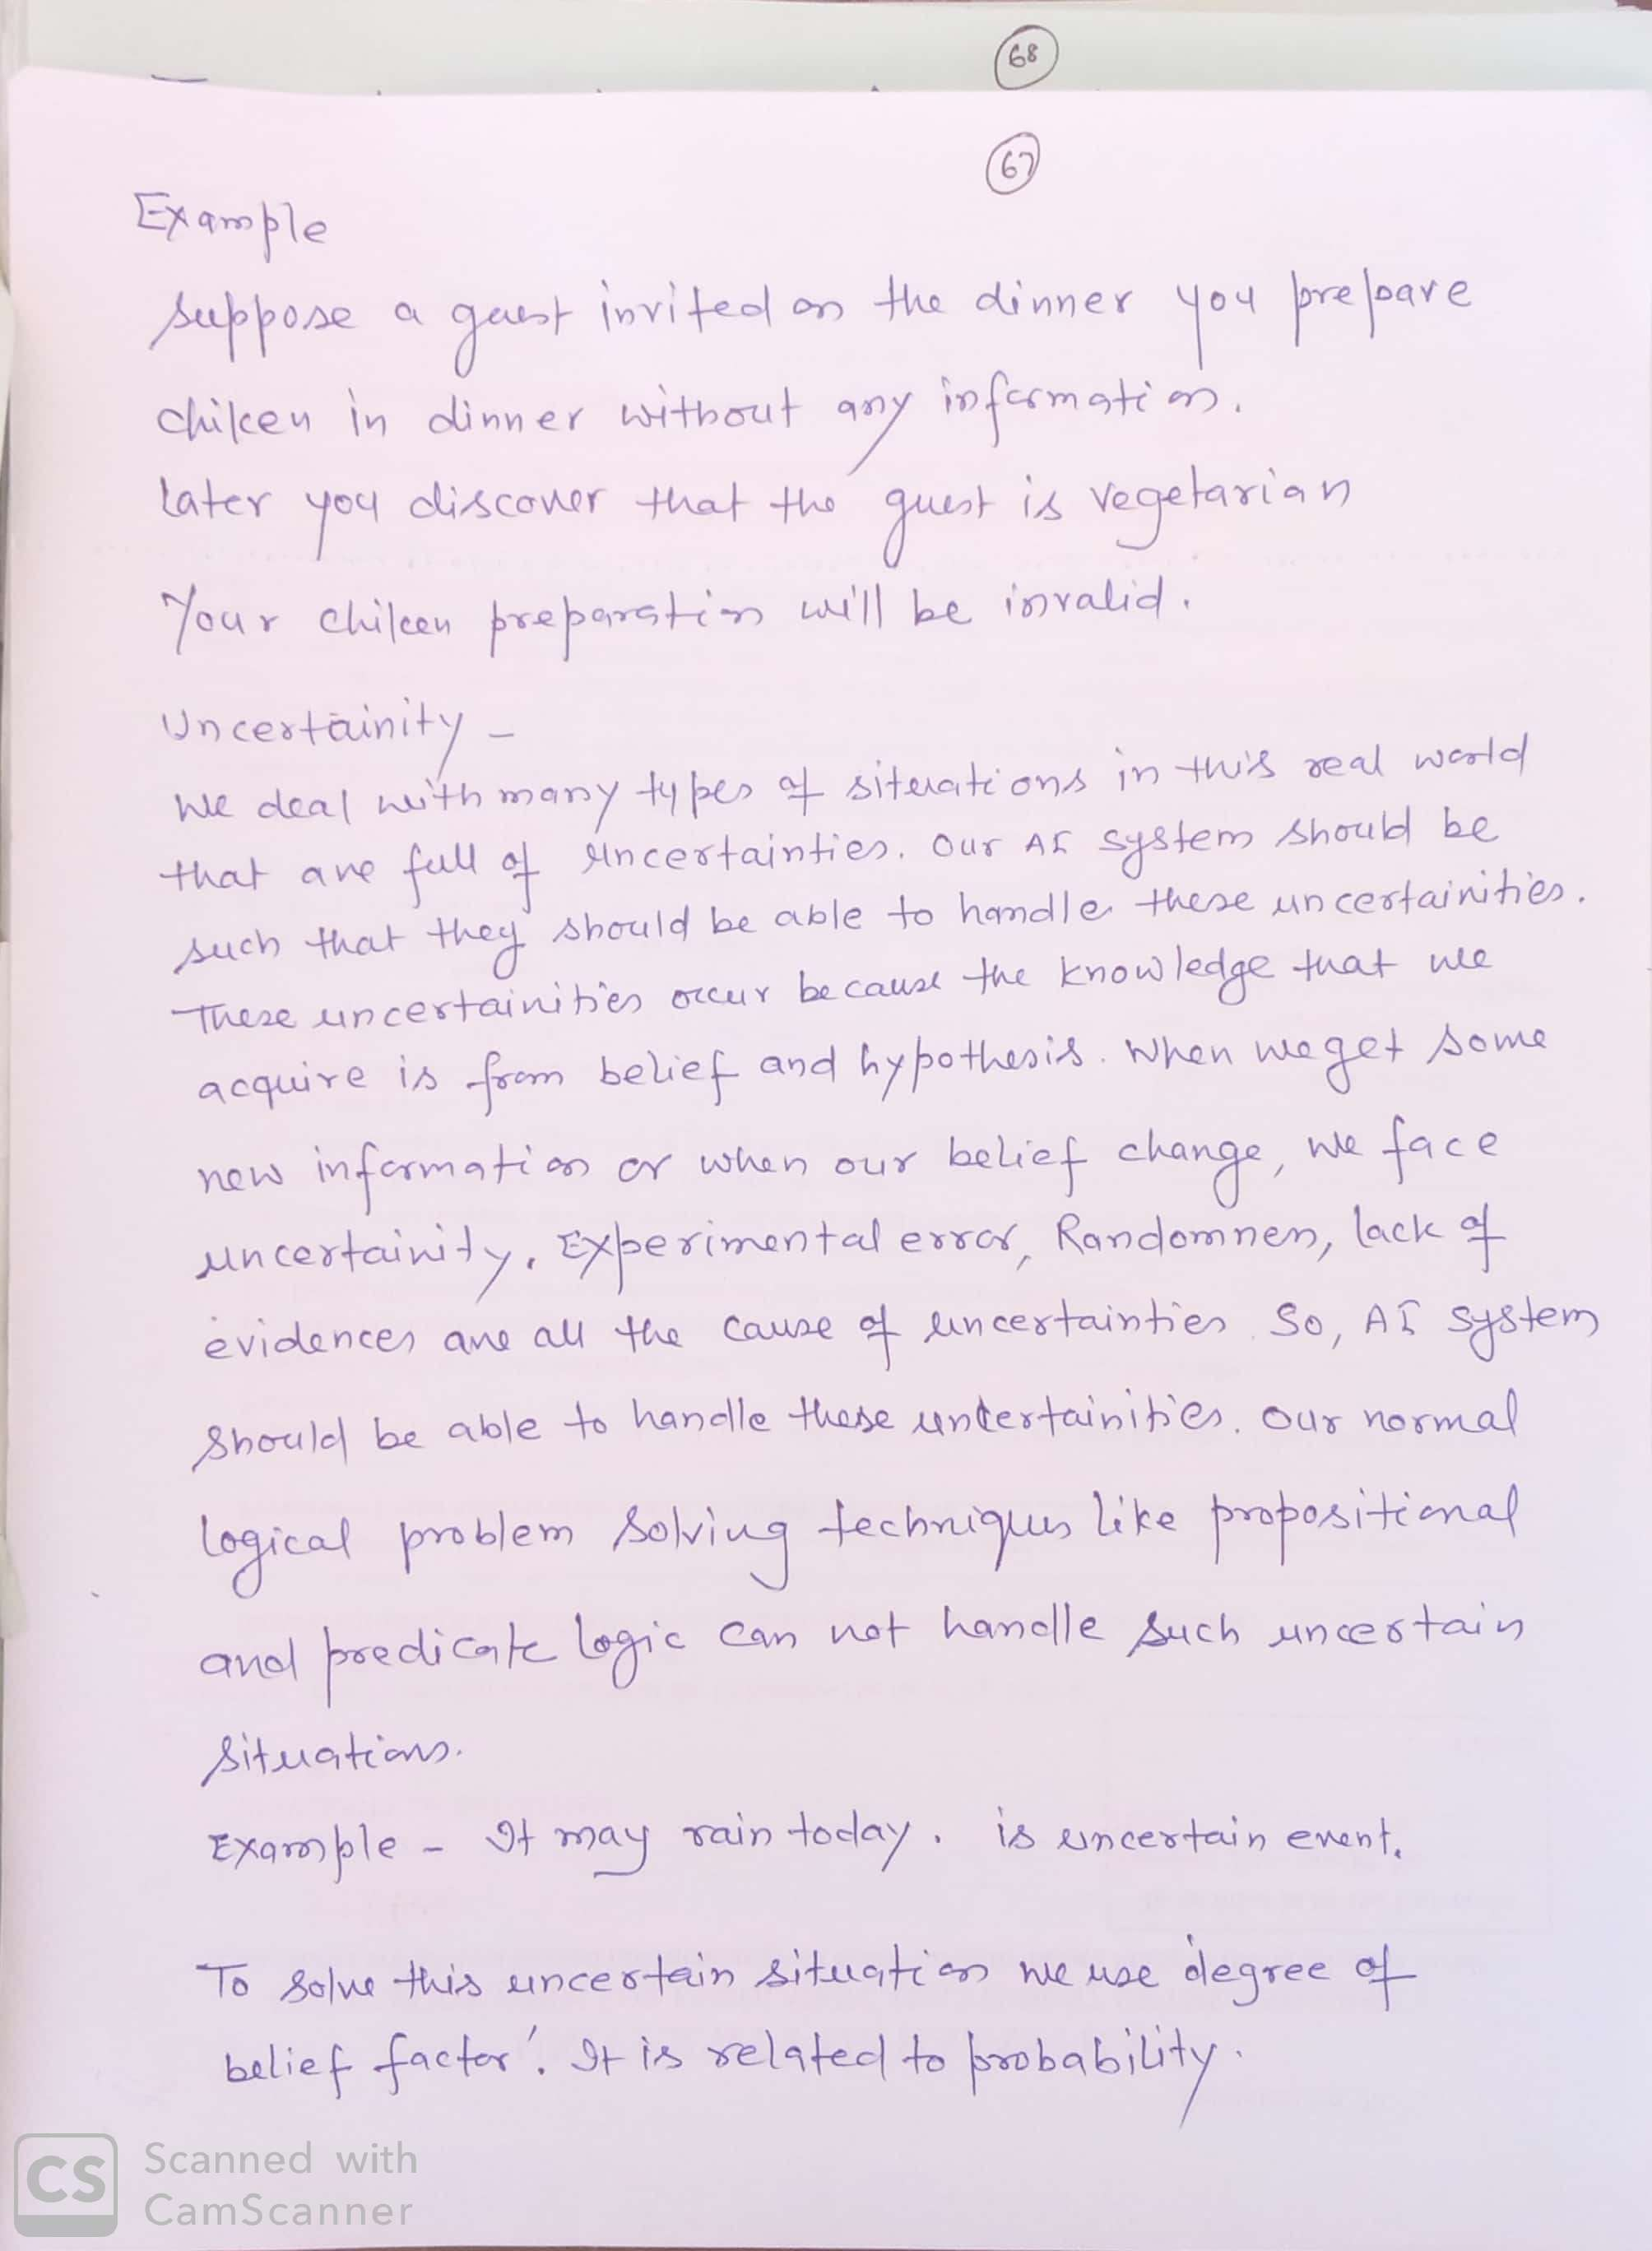 68
67
Example
Suppose a guest invited on the dinner you prepare
chiken in dinner without any information.
Later you discover that the guest is vegetarian
Your chiken preparation will be invalid.
Uncertainity -
We deal with many types of situations in this real world
that are full of uncertainties. Our AI system should be
such that they should be able to handle these uncertainities.
These uncertainities occur because the knowledge that we
acquire is from belief and hypothesis. When we get some
new information or when our belief change, we face
uncertainity. Experimental error, Randomness, lack of
evidences are all the cause of uncertainties. So, AI system
should be able to handle these uncertainities. Our normal
logical problem solving techniques like propositional
and predicate logic can not handle such uncertain
situations.
Example - It may rain today. is uncertain event.
To solve this uncertain situation we use 'degree of
belief factor'. It is related to probability.
CS Scanned with
CamScanner